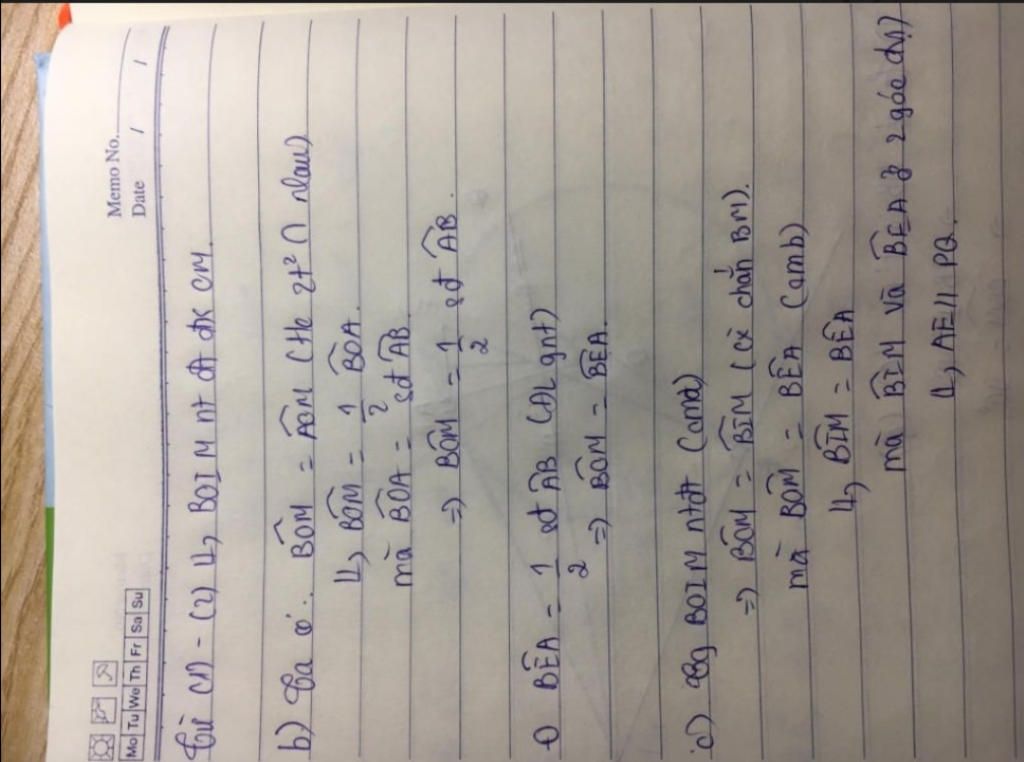 Memo No.
Mo Tu We Th Fr Sa Su
Date / /
Từ (1) - (2) L, BOIM nt đt đk CM.
b) Ta có: BOM = AOM (t/c 2t² ∩ nhau)
L, BOM = 1/2 BOA.
mà BOA = sđ AB
=> BOM = 1/2 sđ AB.
+) BEA = 1/2 sđ AB (ĐL gnt)
=> BOM = BEA.
c) Tg BOIM ntđt (cma)
=> BOM = BIM (cx chắn BM).
mà BOM = BEA (cmb)
L, BIM = BEA
mà BIM và BEA ở 2 góc đvị
L, AE // PQ.